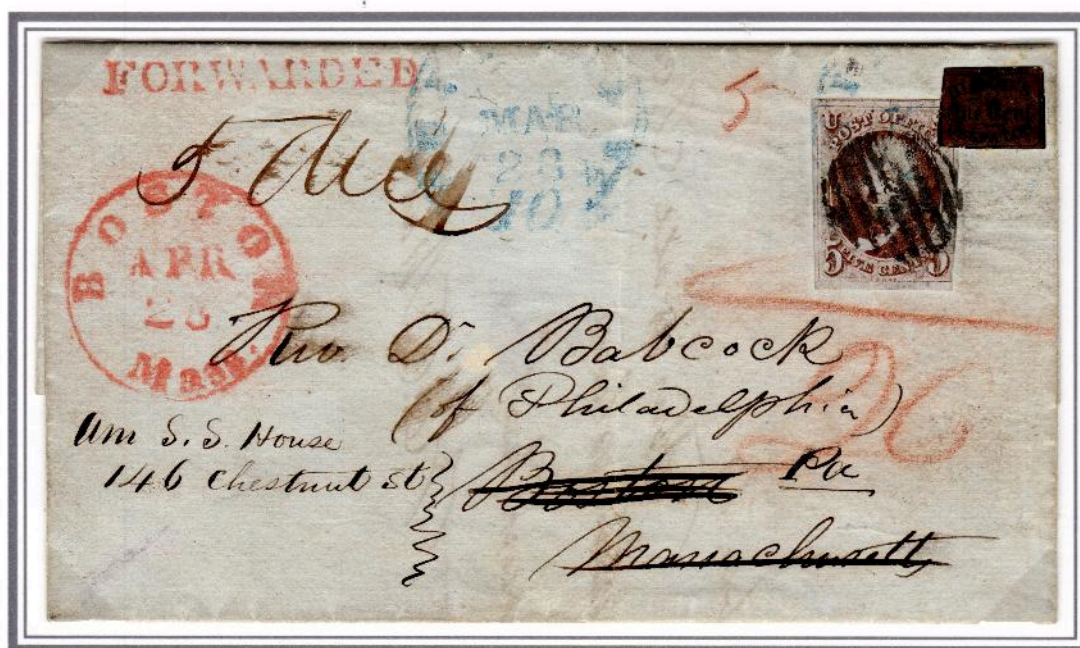 FORWARDED
5
5 due
MAR
28
10
U
POST OFFICE
5 FIVE CENTS 5
BOSTON
APR
Mass.
Rev. Dr Babcock
(of Philadelphia)
Am S. S. House
146 Chestnut St
Boston Pa
Massachusetts